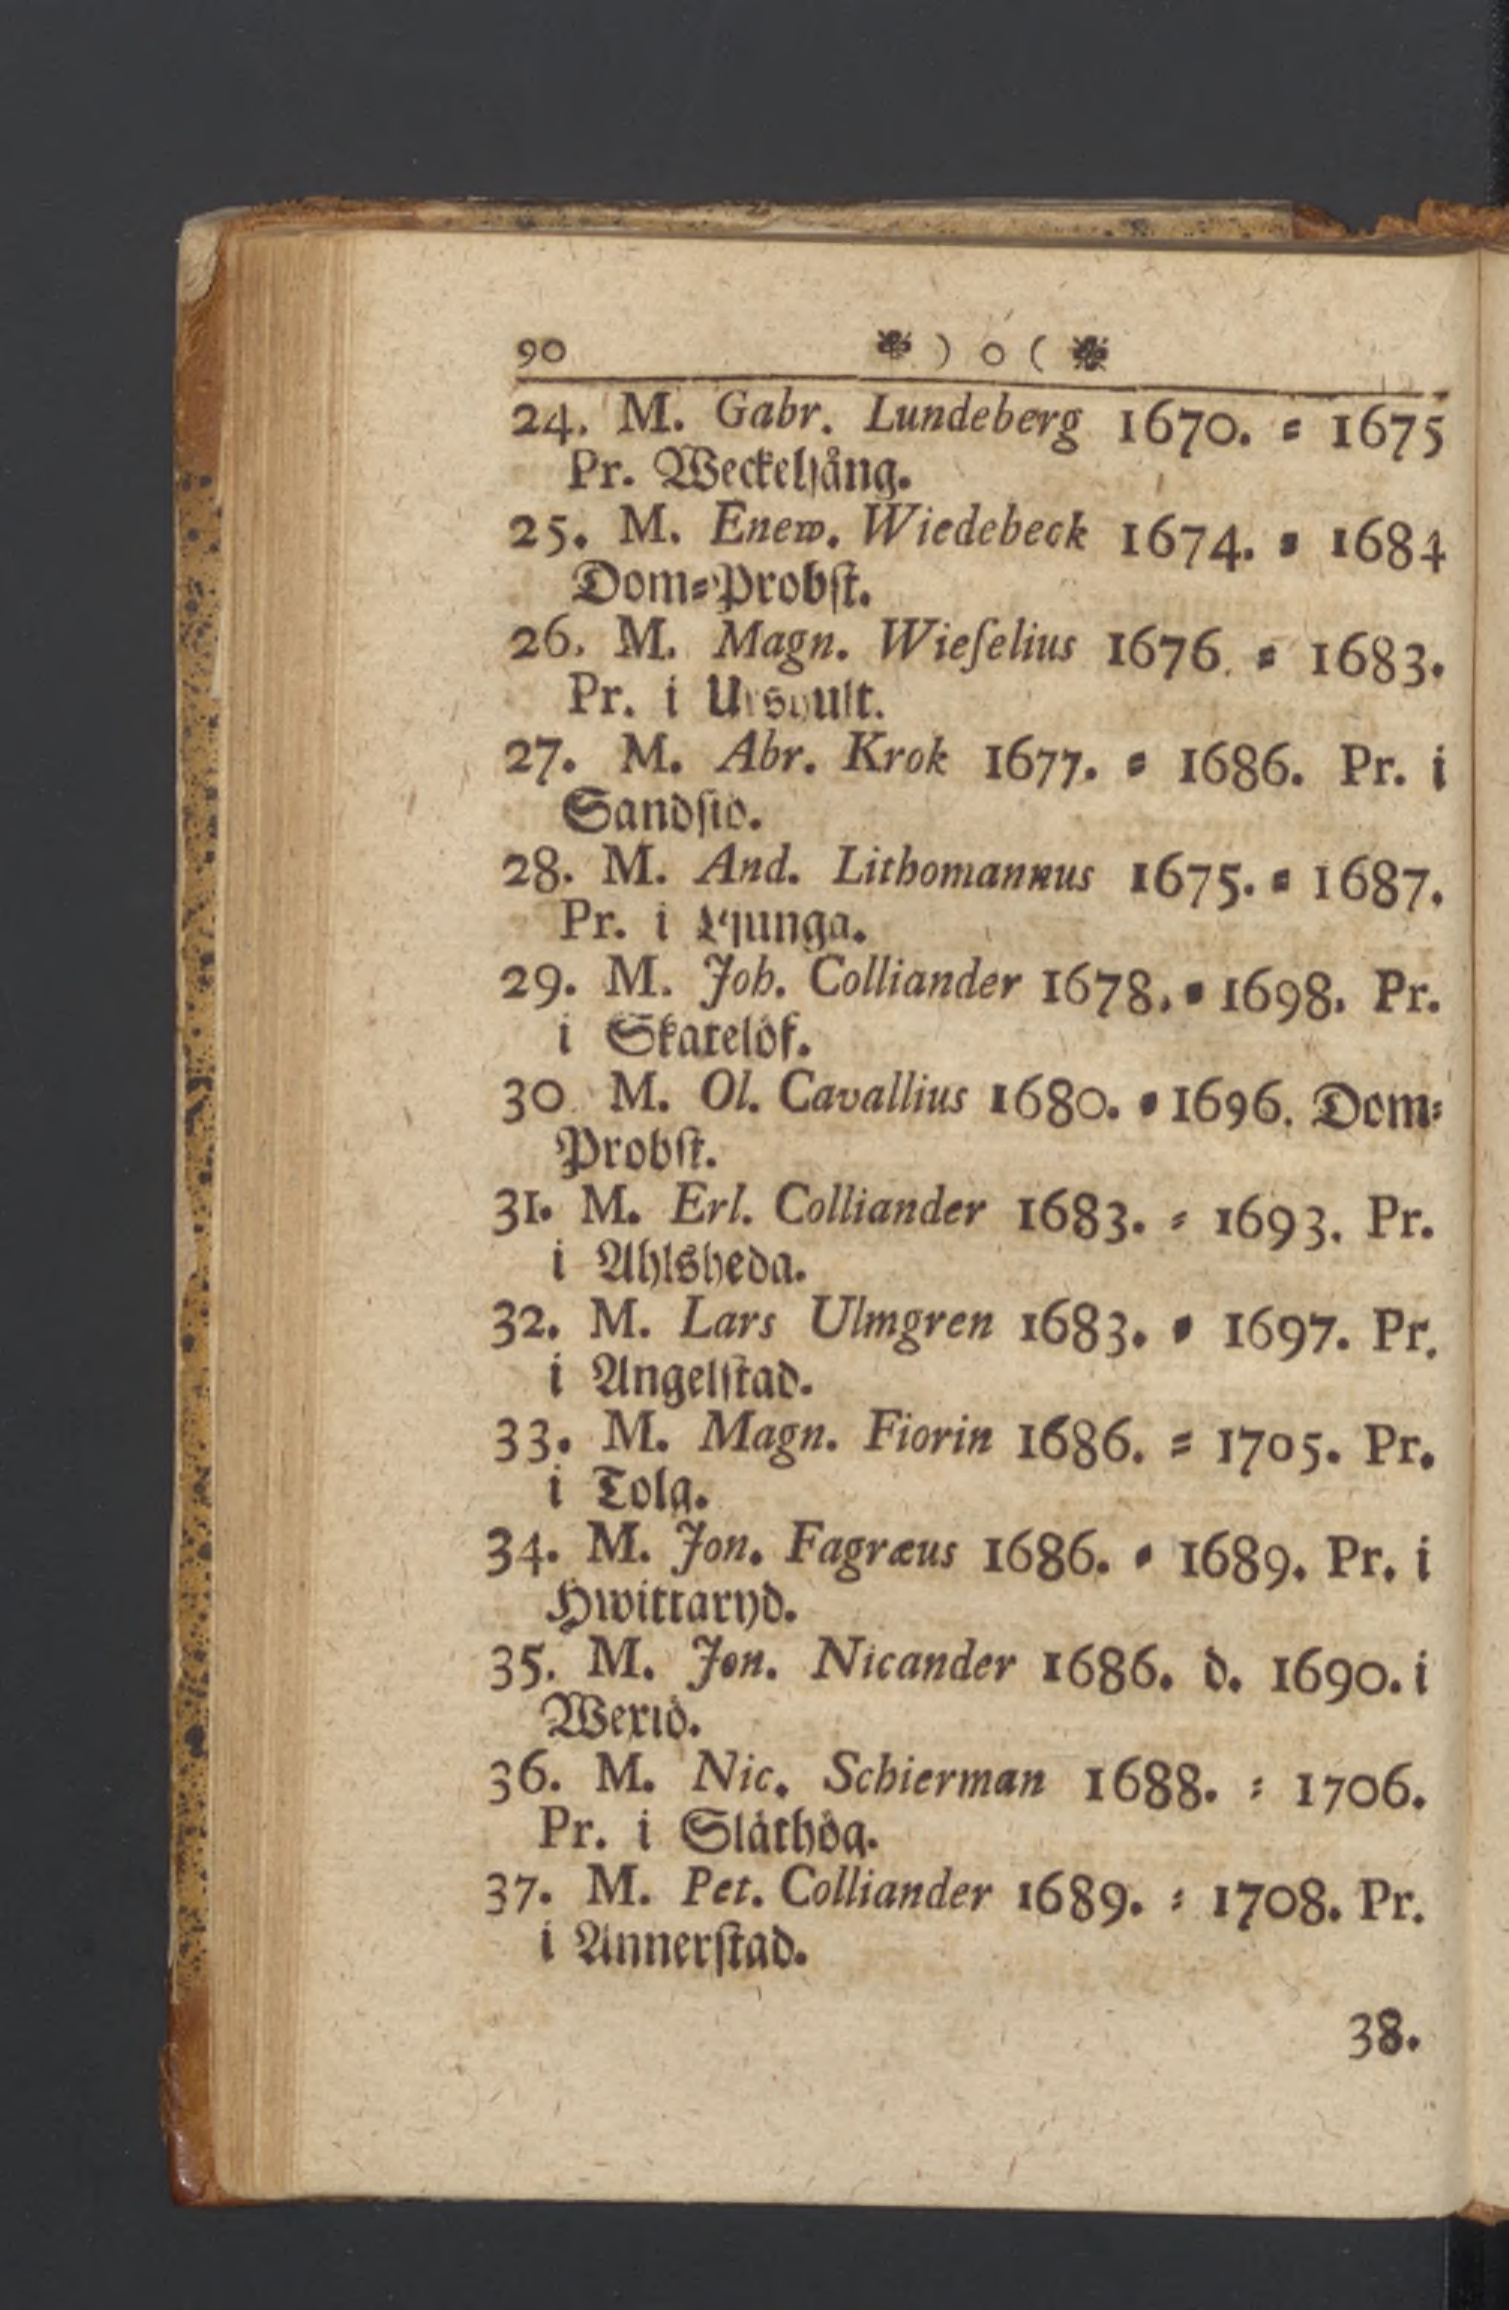 90 ❧ ) o ( ❧
24. M. Gabr. Lundeberg 1670. = 1675
Pr. Weckelsång.
25. M. Enew. Wiedebeck 1674. = 1684
Dom=Probst.
26. M. Magn. Wieſelius 1676. = 1683.
Pr. i Urshult.
27. M. Abr. Krok 1677. = 1686. Pr. i
Sandſiö.
28. M. And. Lithomannus 1675. = 1687.
Pr. i Ljunga.
29. M. Joh. Colliander 1678. = 1698. Pr.
i Skatelöf.
30. M. Ol. Cavallius 1680. = 1696. Dom=
Probſt.
31. M. Erl. Colliander 1683. = 1693. Pr.
i Ahlsheda.
32. M. Lars Ulmgren 1683. = 1697. Pr.
i Angelſtad.
33. M. Magn. Fiorin 1686. = 1705. Pr.
i Tolg.
34. M. Jon. Fagræus 1686. = 1689. Pr. i
Hwittaryd.
35. M. Jon. Nicander 1686. d. 1690. i
Wexiö.
36. M. Nic. Schierman 1688. = 1706.
Pr. i Släthög.
37. M. Pet. Colliander 1689. = 1708. Pr.
i Annerſtad.
38.